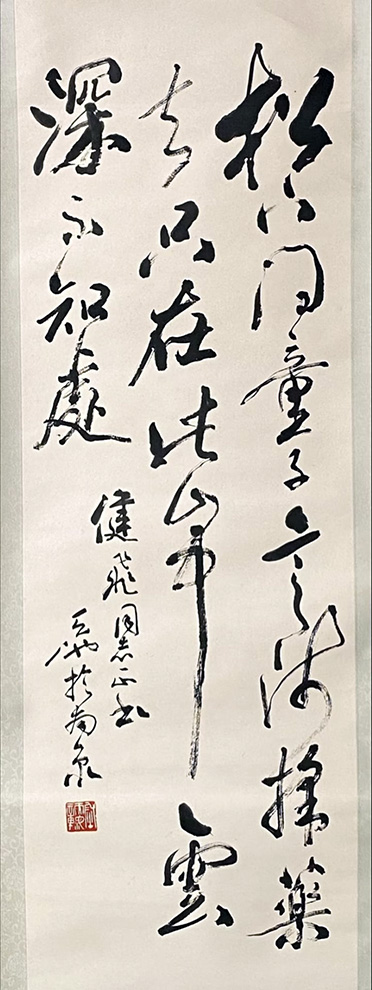 松下问童子言师採藥
去只在此山中雲
深不知處
健飛同志正书
於南京